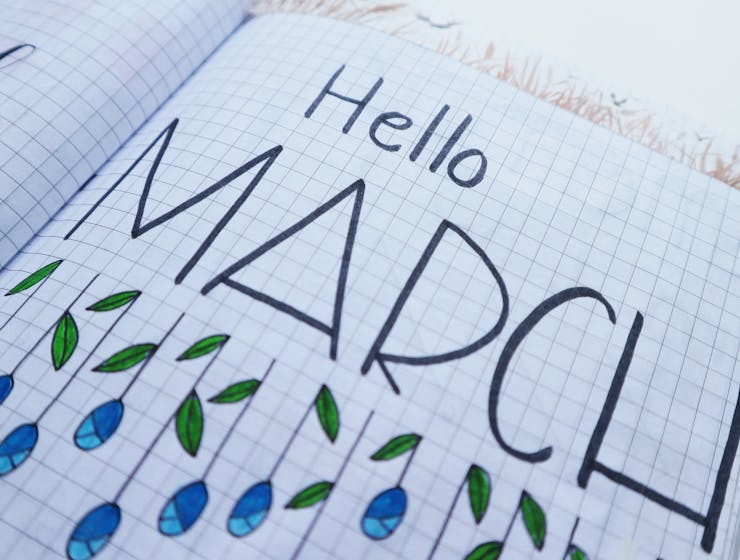 Hello
MARCH